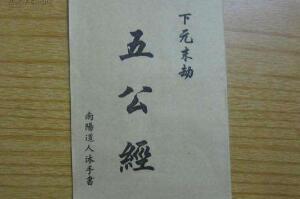 下元末劫
五公經
南陽道人沐手書